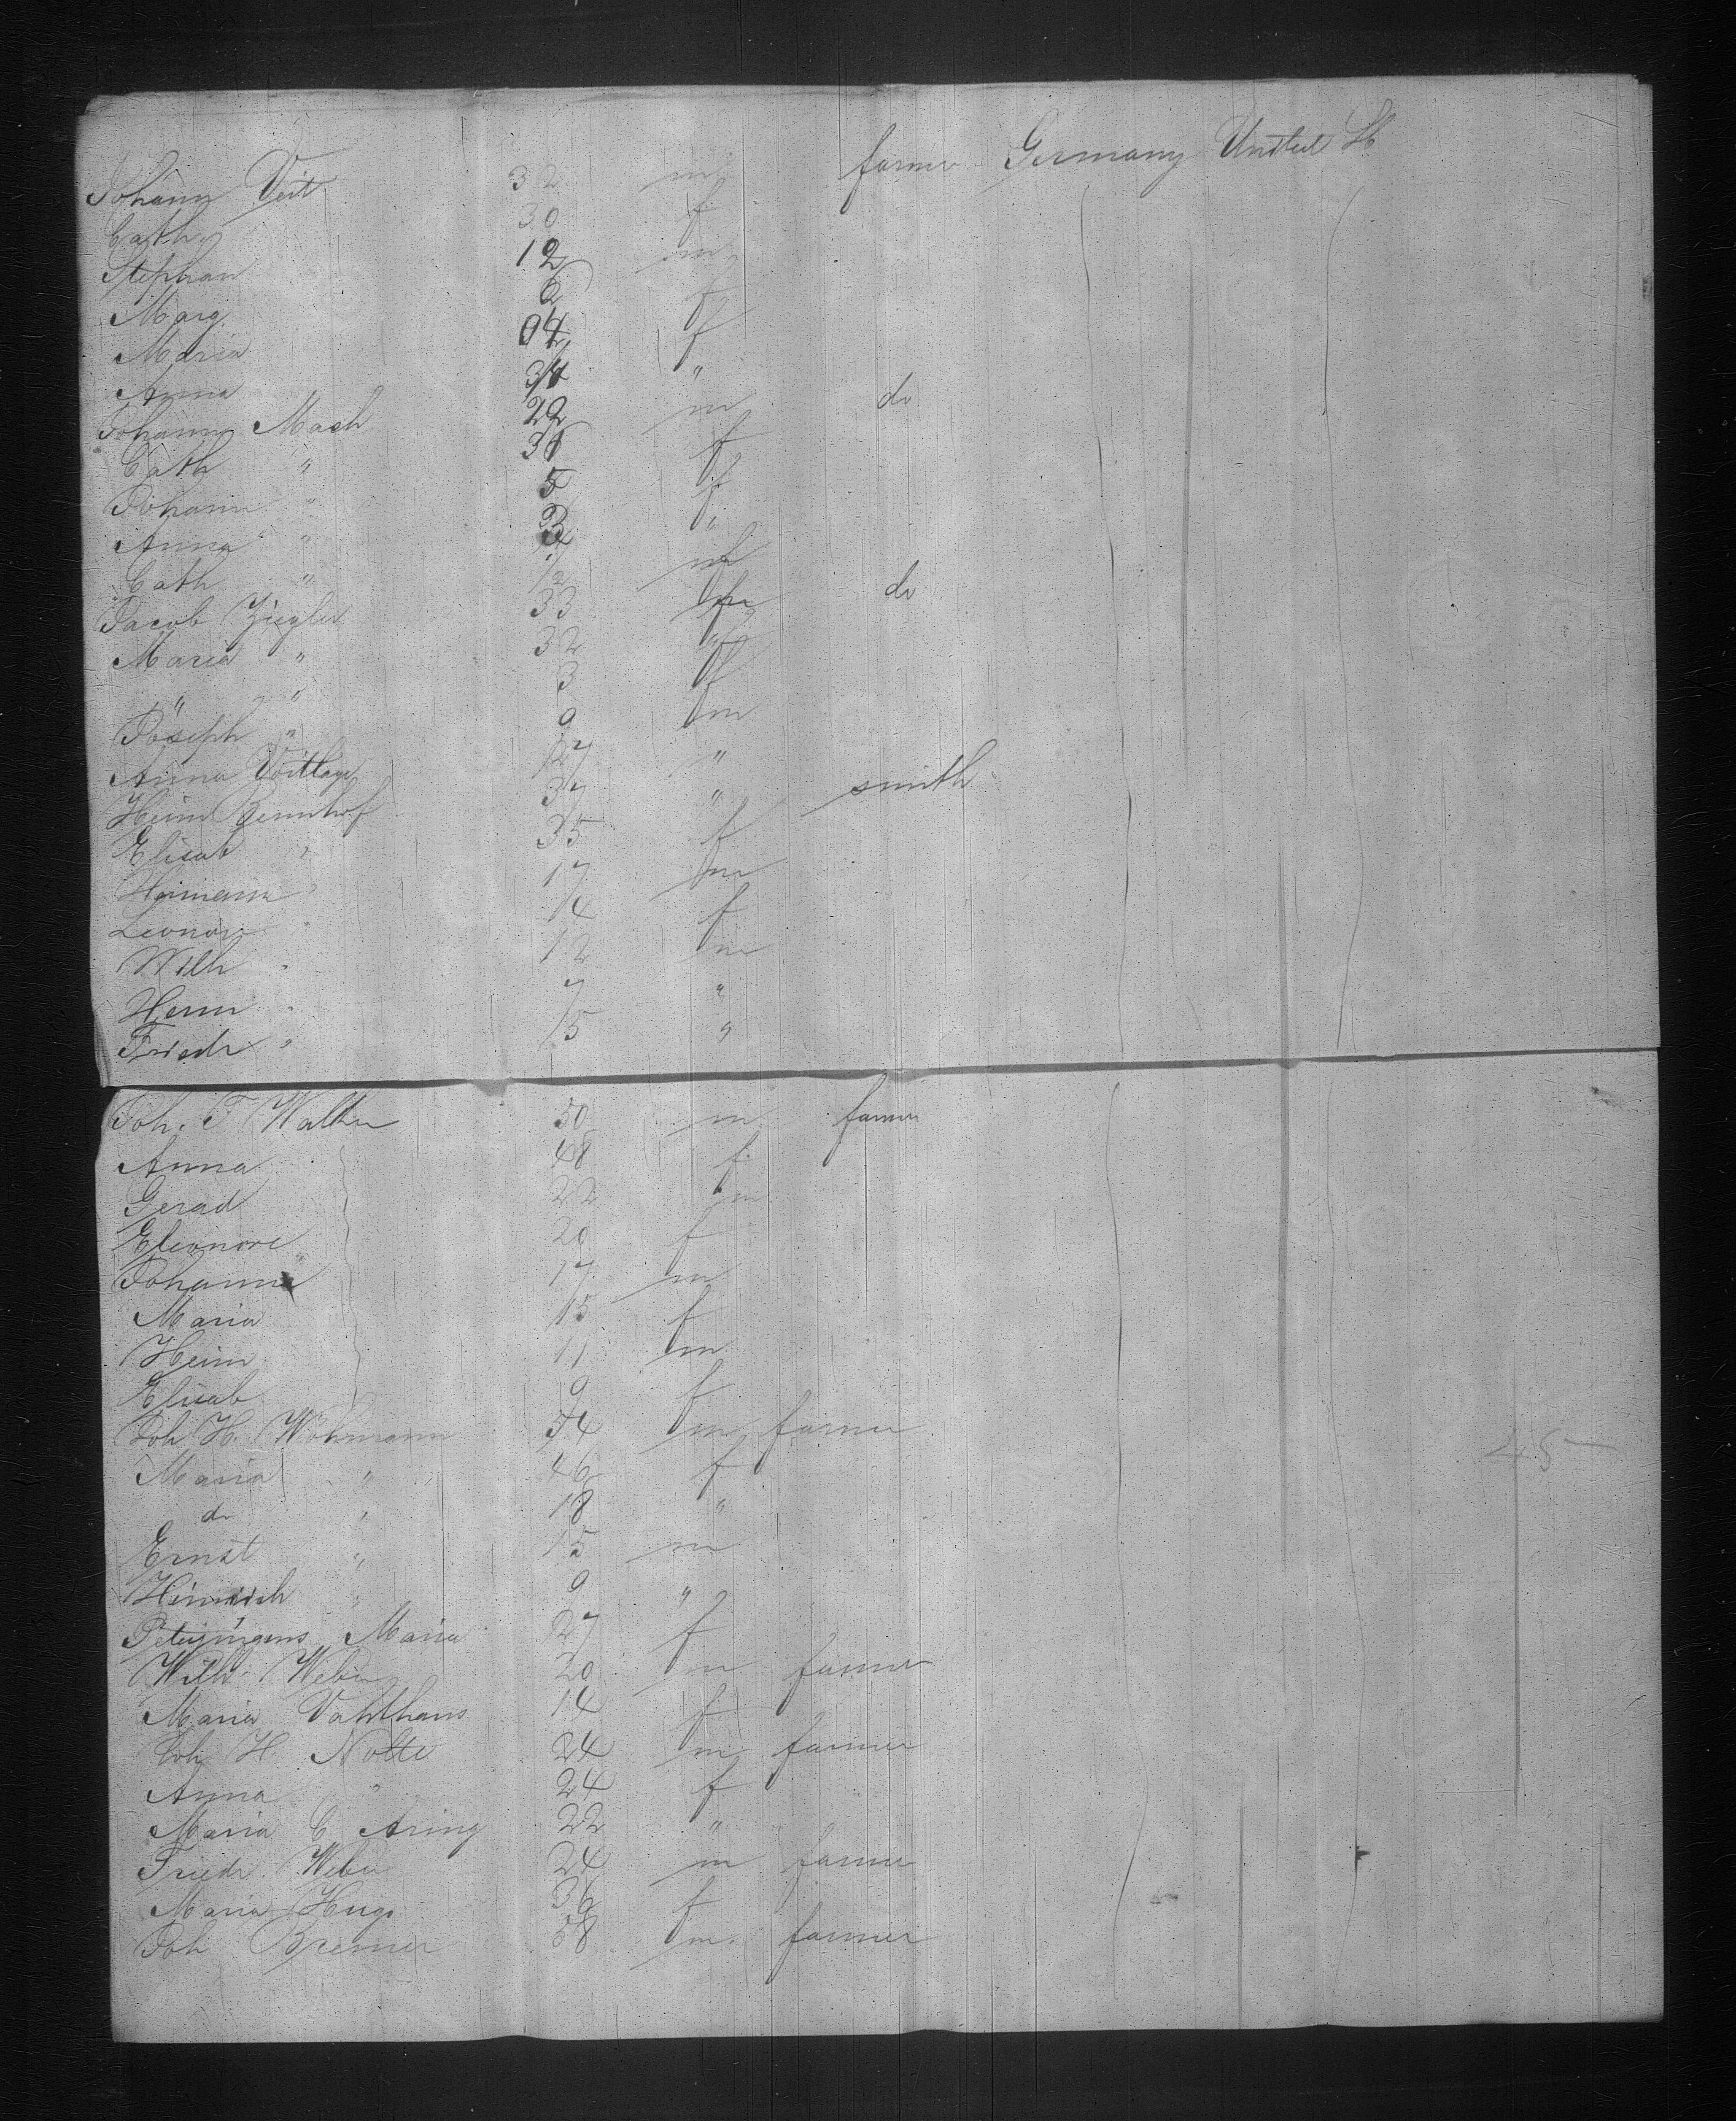 Johann Veit 32 m farmer Germany United St
Cath 30 f
Stephan 12 m
Marg 6 f
Maria 04 f
Anna 3/4 "
Johann Mach 22 m do
Cath " 31 f
Johann " 5 f
Anna " 3 "
Cath "
Jacob Ziegler 33 m do
Maria " 32 f
" " 3 f
Joseph " 9 m
Anna 27 "
Heinr 37 " smith
Elisab " 35 f
Hermann " 17 m
Leonore " 14 f
Wilh " 12 m
Herm " 7 "
Friedr " 15 "
Joh. F Walter 50 m farmer
Anna 48 f
Gerad 22 m
Eleonore 20 f
Johann 17 m
Maria 15 f
Heinr 11 m
Elisab 9 f
Joh H. Wöhmann 54 m farmer
Maria " 46 f 45
do " 18 "
Ernst " 15 m
Heinrich " 9 "
Maria 27 f
Wilh. Weber 20 m farmer
Maria Vahlhaus 14 f
Joh H. Nolte 24 m farmer
Anna " 24 f
Maria C Aring 22 "
Friedr. Weber 24 m farmer
Maria Hugo 36 f
Joh Bremer 58 m farmer